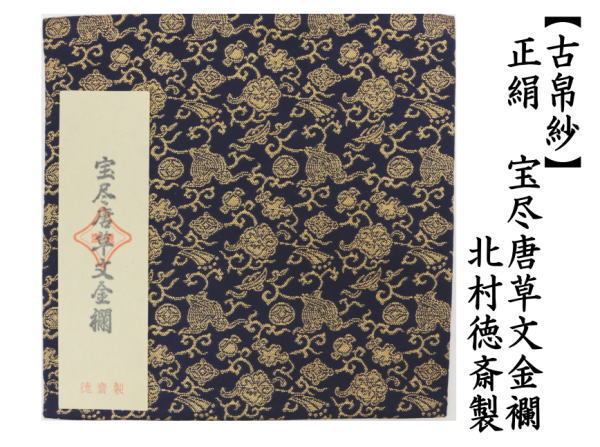 【古帛紗】
正絹 宝尽唐草文金襴
北村徳斎製
宝尽唐草文金襴
徳斎製